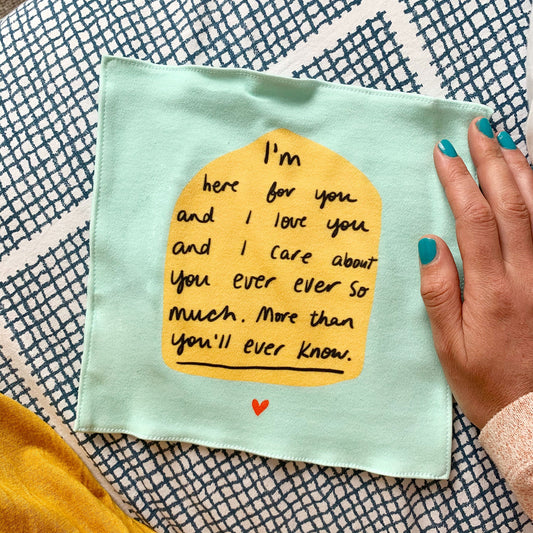 I'm
here for you
and I love you
and I care about
you ever ever so
much. More than
you'll ever know.